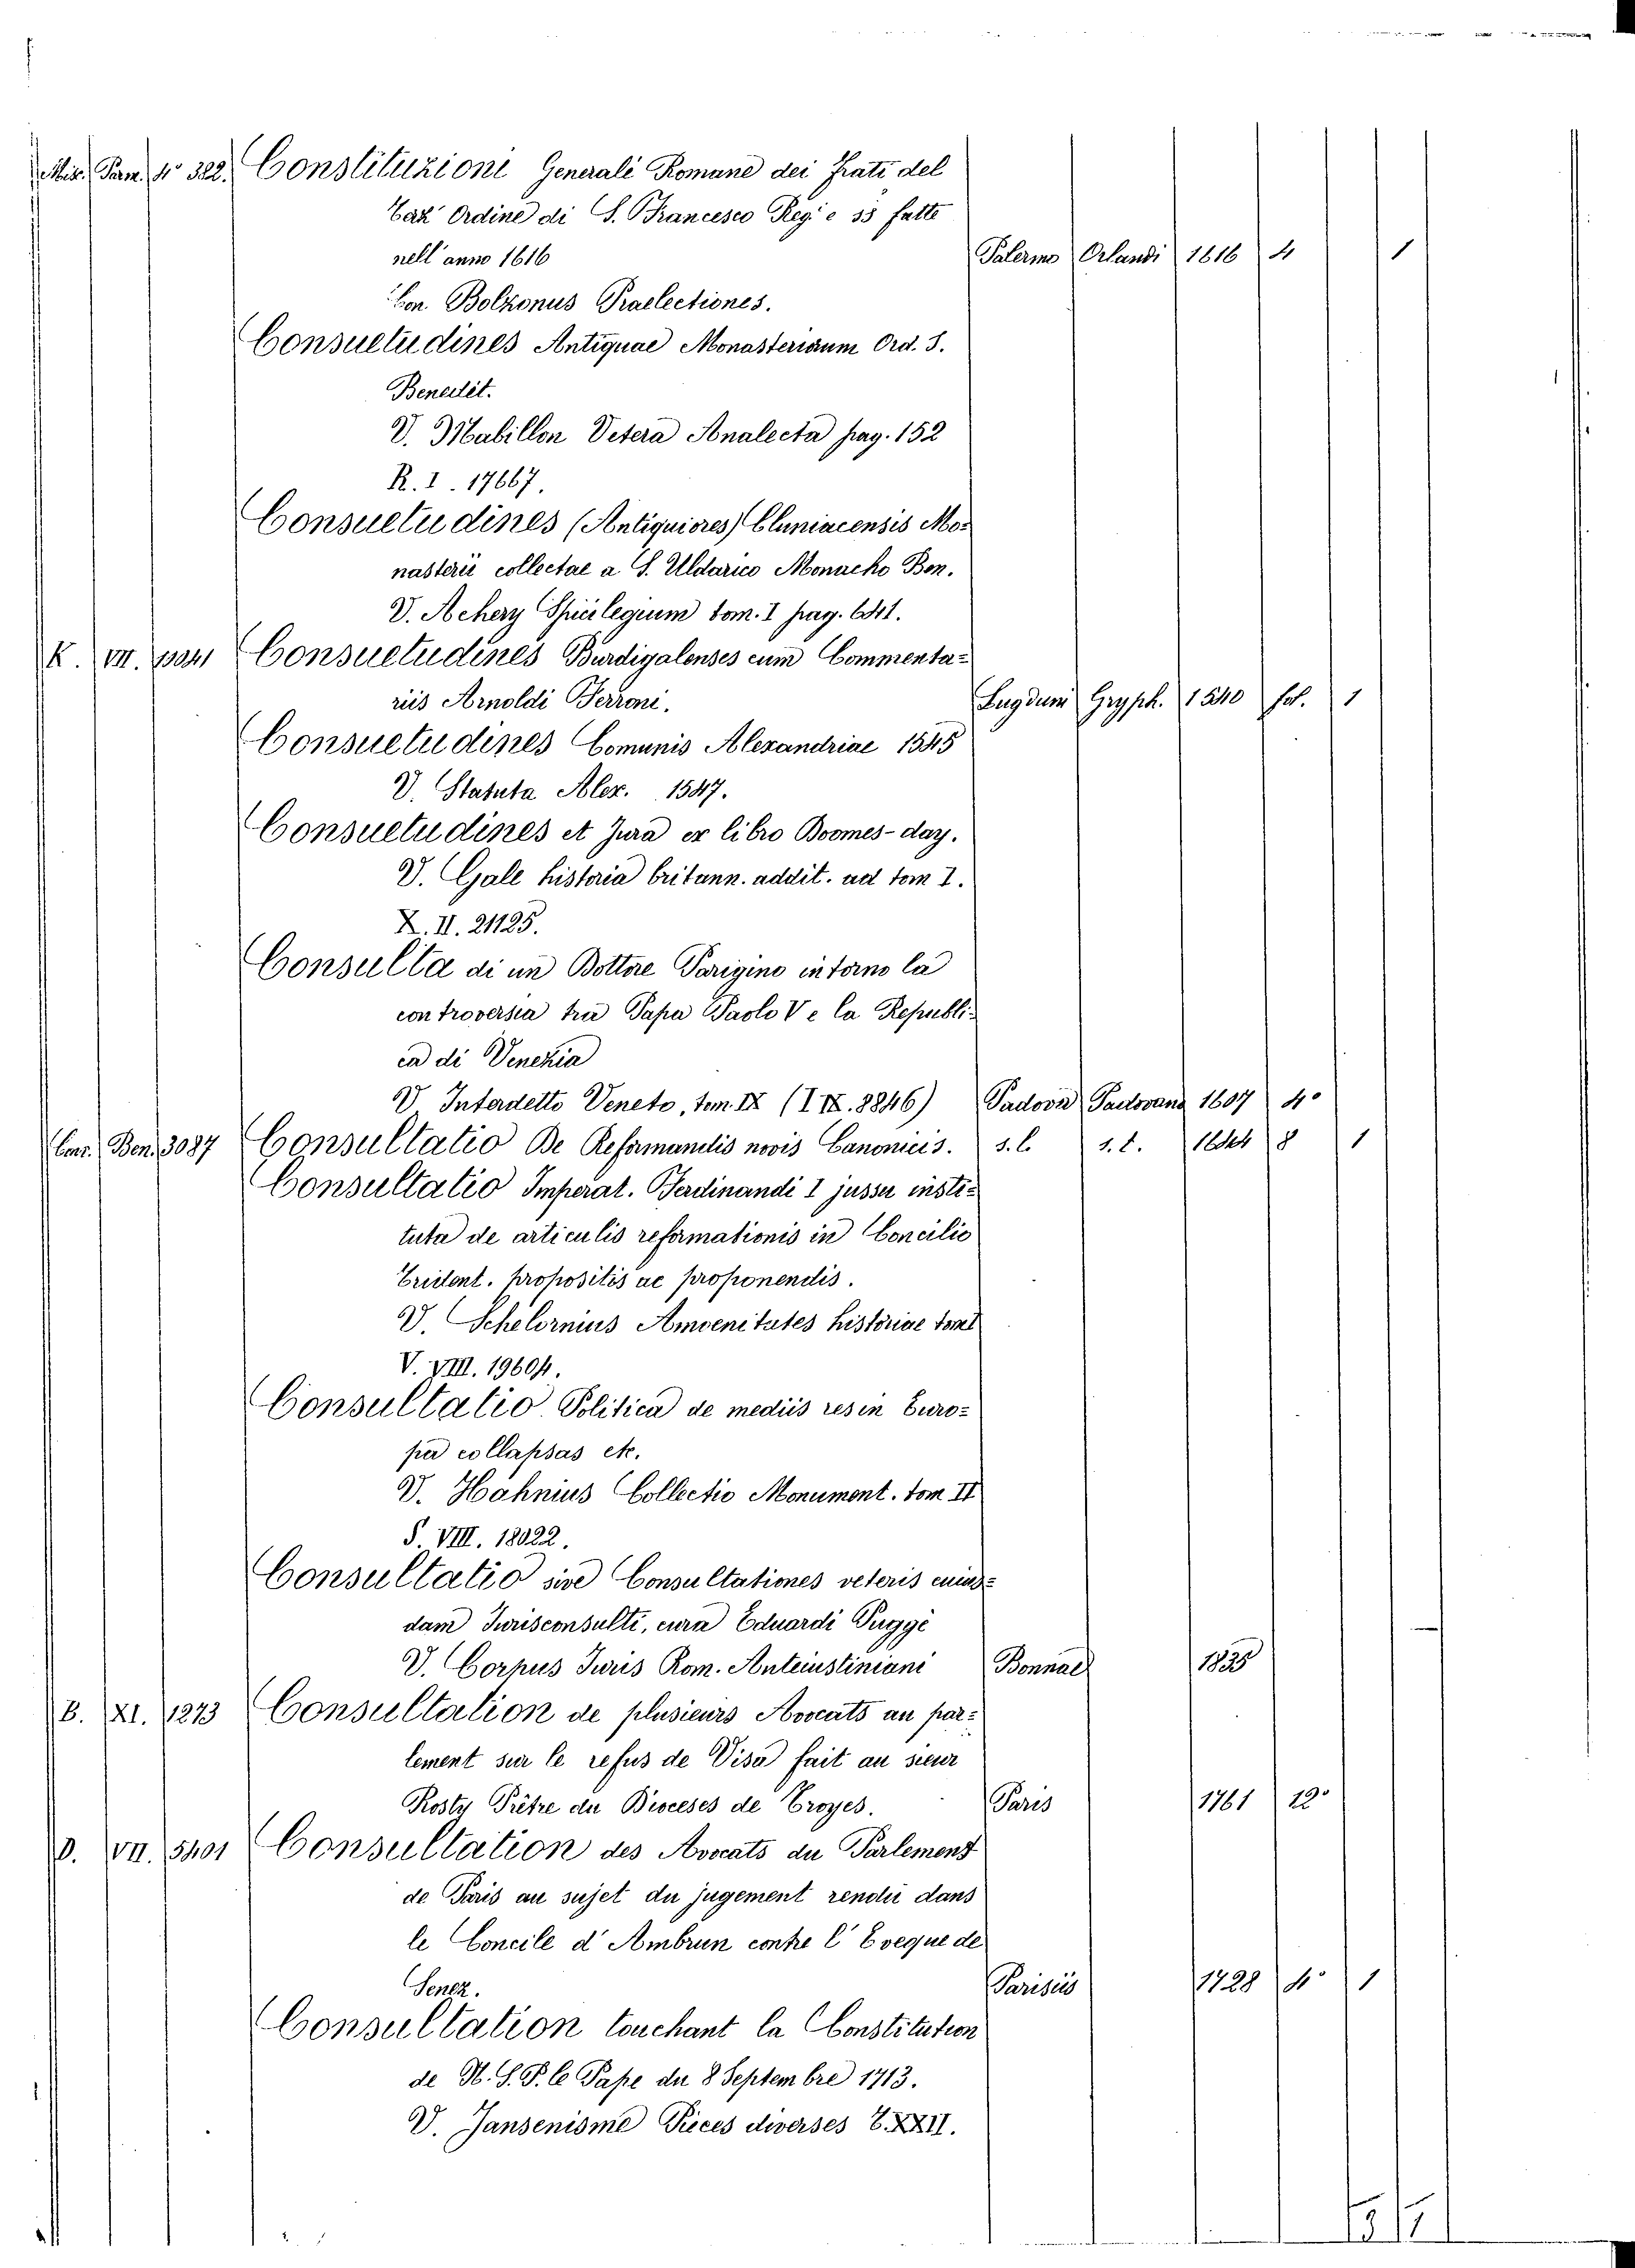 Mis. Parm. 4º 382. Constituzioni Generali Romane dei Frati del
Terz' Ordine di S. Francesco Reg: e ss fatte
nell' anno 1616 Palermo Orlandi 1616 4 1
Con. Bolzonus Praelectiones.
Consuetudines Antiquae Monasteriorum Ord. S.
Benedit.
V. Mabillon Vetera Analecta pag. 152
R. I. 17667.
Consuetudines (Antiquiores) Cluniacensis Mo-
nasterii collectae a S. Uldarico Monacho Ben.
V. Achery Spicilegium tom. I pag. 641.
K. VII. 13041 Consuetudines Burdigalenses cum Commenta-
riis Arnoldi Ferroni. Lugduni Gryph. 1540 fol. 1
Consuetudines Comunis Alexandriae 1545
V. Statuta Alex. 1547.
Consuetudines et Jura ex libro Doomes-day.
V. Gale historia britann. addit. ad tom I.
X. II. 21125.
Consulta di un Dottore Parigino intorno la
controversia tra Papa Paolo V e la Republi-
ca di Venezia
V. Interdetto Veneto, tom. IX (I IX. 8846) Padova Padovano 1607 4º
Ben. 3087 Consultatio De Reformandis novis Canonicis. s. l. s. t. 8 1
Consultatio Imperat. Ferdinandi I jussu insti-
tuta de articulis reformationis in Concilio
Trident. propositis ac proponendis.
V. Schelornius Amoenitates historiae tom I
V. VIII. 19604.
Consultatio Politica de mediis res in Euro-
pa collapsas etc.
V. Hahnius Collectio Monument. tom II
S. VIII. 18022.
Consultatio sive Consultationes veteris cuius-
dam Jurisconsulti, cura Eduardi Puggè
V. Corpus Juris Rom. Anteiustiniani Bonnae 1835
B. XI. 1273 Consultation de plusieurs Avocats au par-
lement sur le refus de Visa fait au sieur
Rosty Prêtre du Dioceses de Troyes. Paris 1761 12º
D. VII. 5401 Consultation des Avocats du Parlement
de Paris au sujet du jugement rendu dans
le Concile d'Ambrun contre l'Eveque de
Senez. Parisiis 1728 4º 1
Consultation touchant la Constitution
de N. S. P. le Pape du 8 Septembre 1713.
V. Jansenisme Pieces diverses T. XXII.
3 1